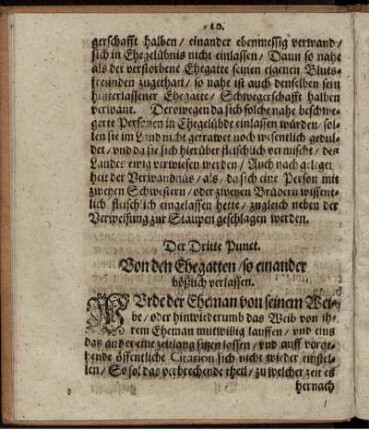 10.
gerschafft halben / einander ebenmessig verwand /
sich in Ehegelübnis nicht einlassen / Dann so nahe
als der verstorbene Ehegatte seinen eigenen Bluts-
freunden zugethan / so nahe ist auch denselben sein
hinterlassener Ehegatte / Schwegerschafft halben
verwant. Derowegen da sich solche nahe beschwe-
gerte Personen in Ehegelübde einlassen würden / sol-
len sie im Land nicht getrawet noch wesentlich gedul-
det / vnd da sie sich hierüber fleischlich vermischt / des
Landes ewig verwiesen werden / Auch nach gelegen
heit der Verwandnüs / als / da sich eine Person mit
zweyen Schwestern / oder zweyen Brüdern wissent-
lich fleischlich eingelassen hette / zugleich neben der
Verweisung zur Staupen geschlagen werden.
Der Dritte Punct.
Von den Ehegatten / so einander
bößlich verlassen.
WUrde der Eheman von seinem Wei-
be / oder hinwiederumb das Weib von ih-
rem Eheman mutwillig lauffen / vnd eins
das andere eine zeitlang sitzen lassen / vnd auff vorge-
hende öffentliche Citation sich nicht wieder einstel-
len / So sol das verbrechende theil / zu welcher zeit es
hernach